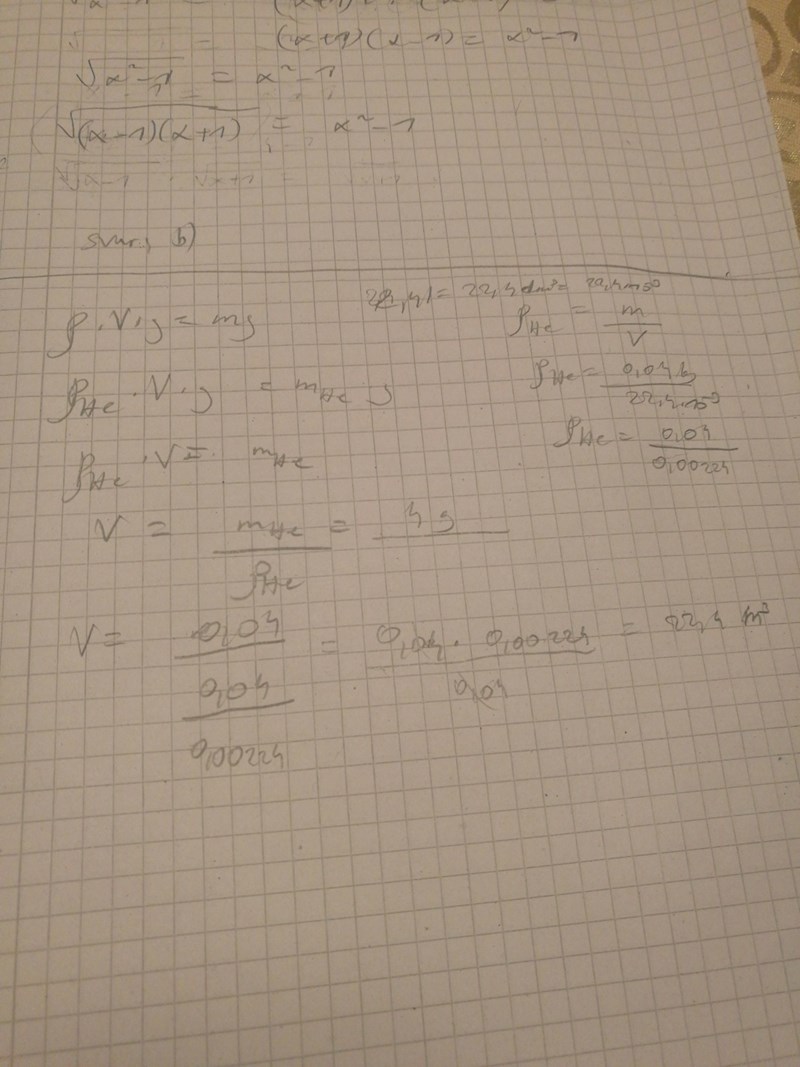 (x+1)(x-1) = x²-1
√x²-1 = x²-1
√(x-1)(x+1) = x²-1
b)
22,4l = 22,4 dm³ =
ρ·V·g = mg
ρHe = m/V
ρHe·V·g = mHe g
ρHe = 0,04 / 22,4
ρHe·V = mHe
ρHe = 0,04/0,00224
V = mHe/ρHe = 4g
V = 0,04/0,04/0,00224 = 0,04·0,00224/0,04 = 22,4 m³